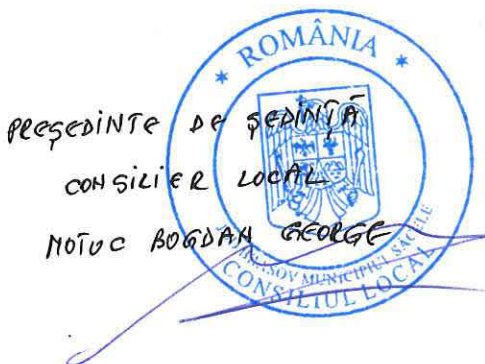 PREȘEDINTE DE ȘEDINȚĂ
CONSILIER LOCAL
MOTOC BOGDAN GEORGE
* ROMÂNIA *
BRAȘOV MUNICIPIUL SĂCELE
CONSILIUL LOCAL